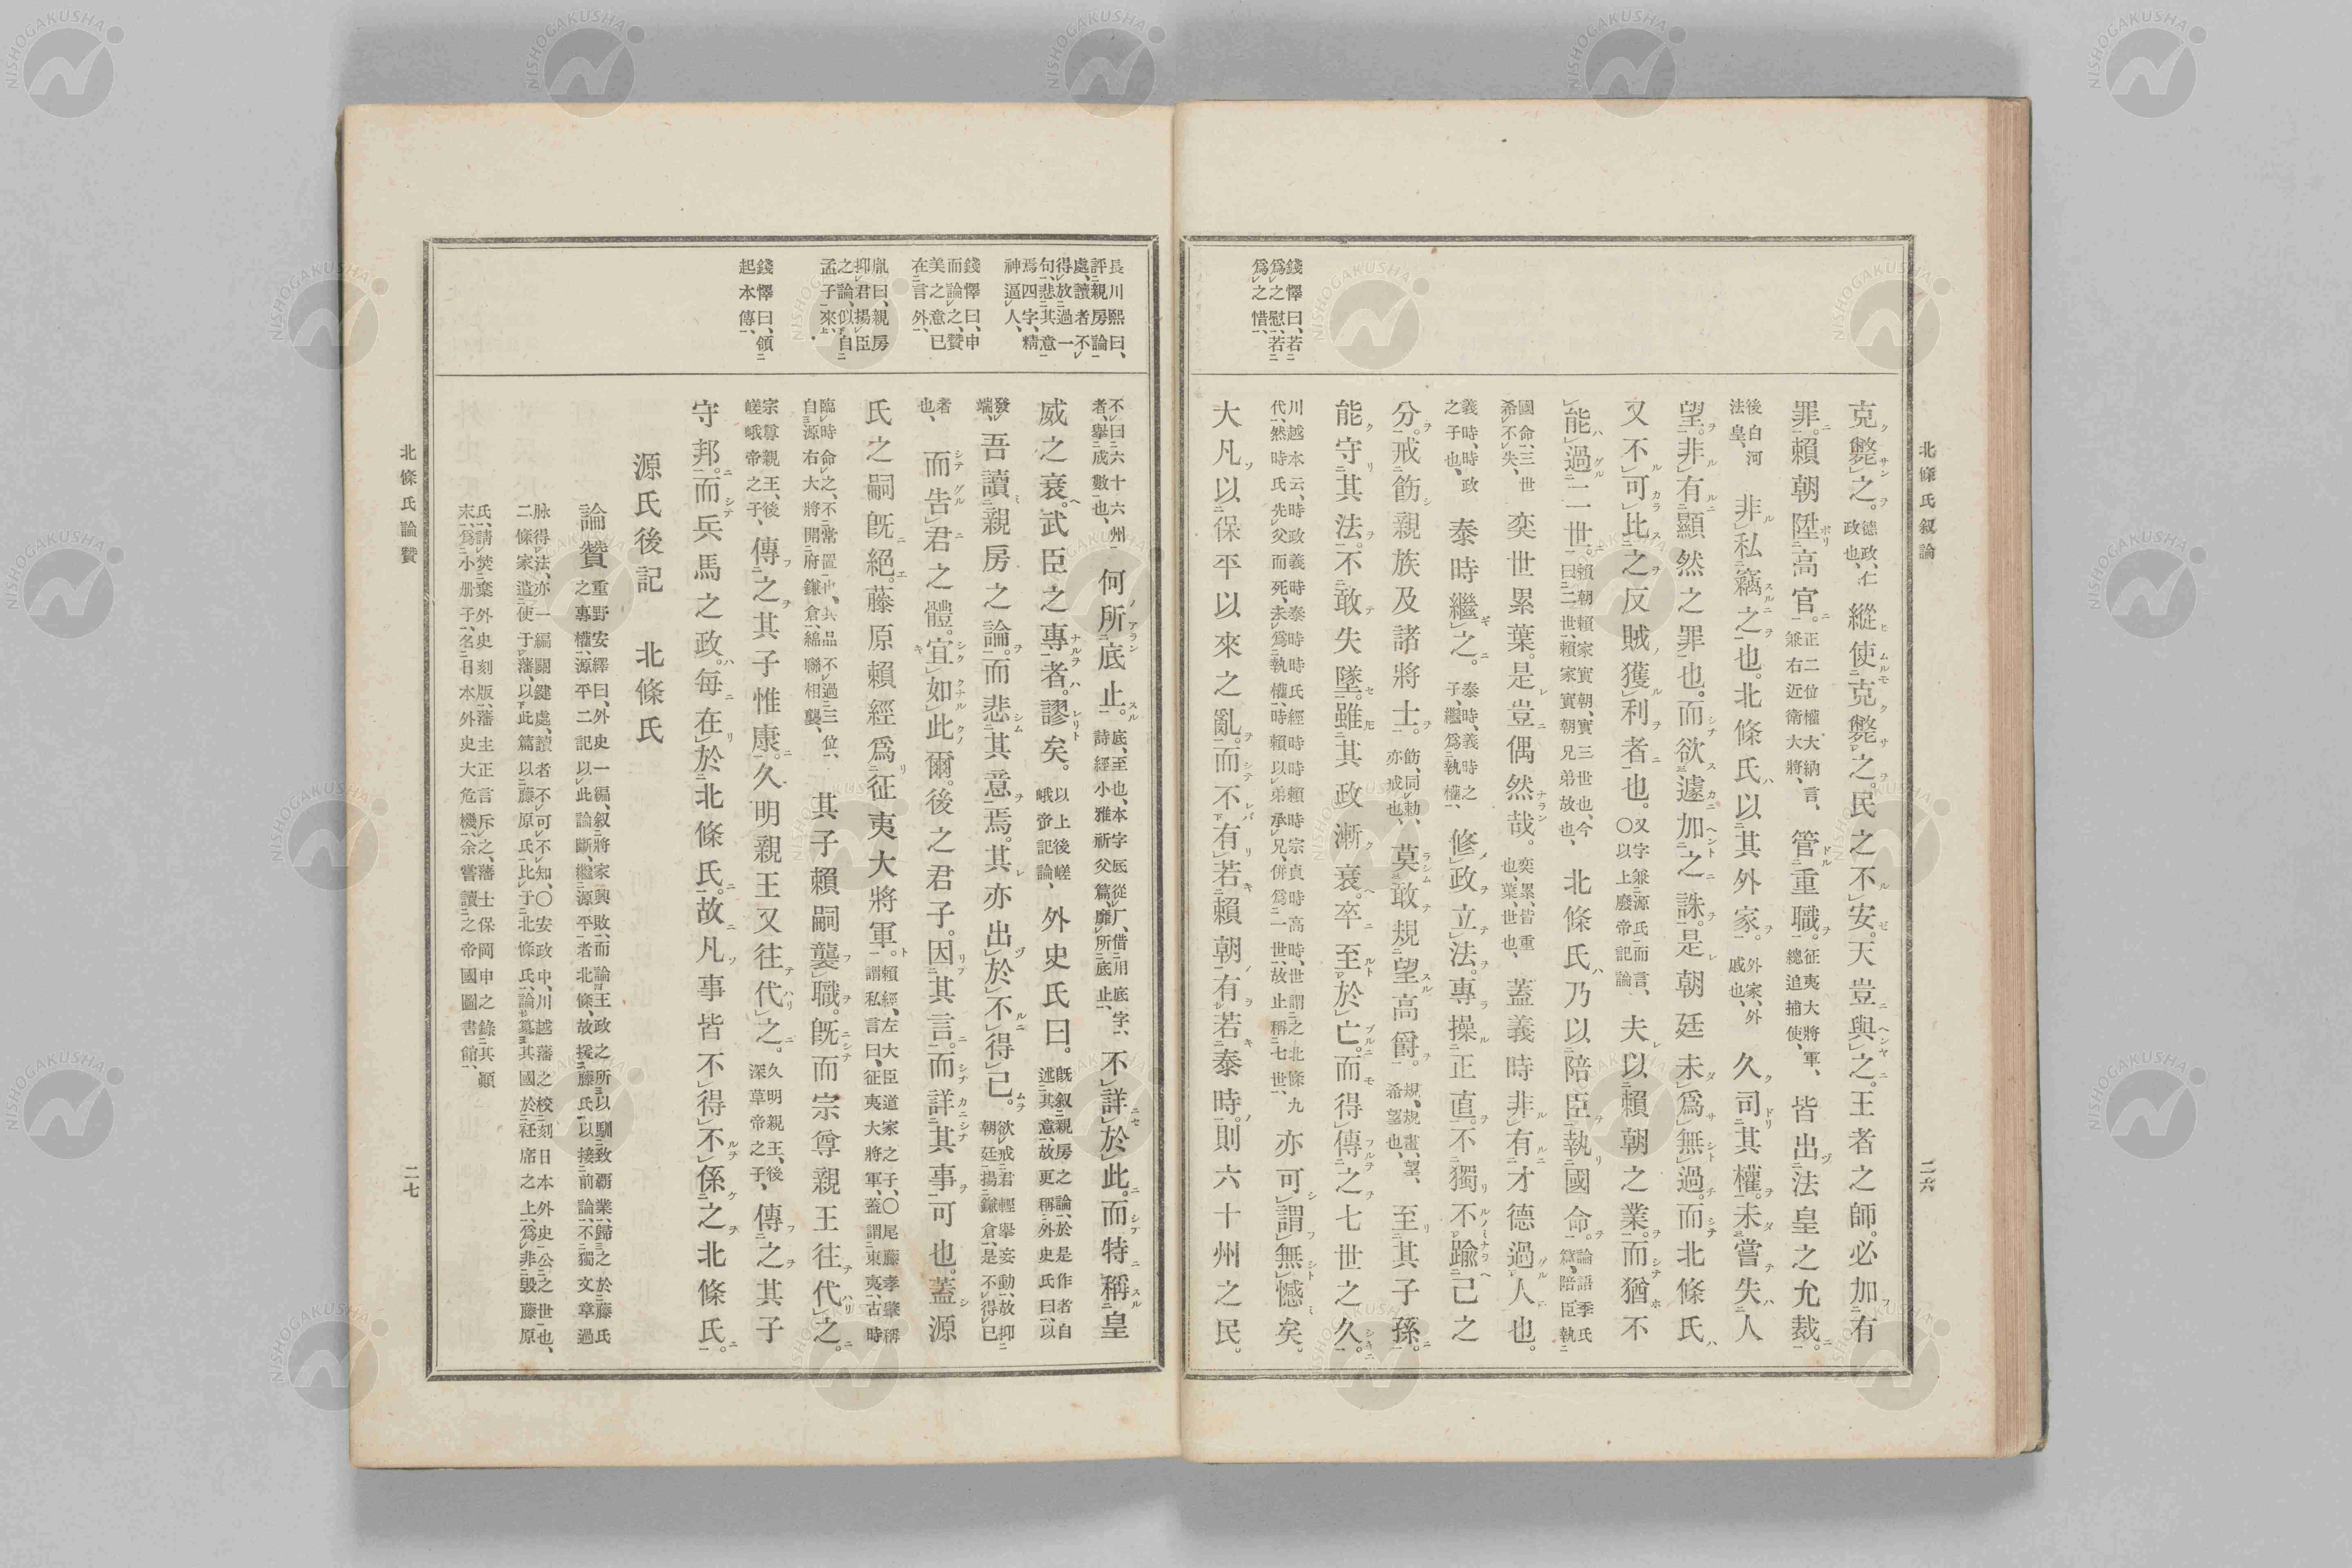 北條氏叙論
二六
錢懌曰、若
爲之慰、若
爲之惜、
克斃之。德政、仁政也、縱使克斃之。民之不安。天豈與之。王者之師。必加有
罪。賴朝陞高官。正二位權大納言、兼右近衛大將、管重職。征夷大將軍、總追捕使、皆出法皇之允裁。
後白河法皇、非私竊之也。北條氏以其外家。外家、外戚也、久司其權。未嘗失人
望。非有顯然之罪也。而欲遽加之誅。是朝廷未爲無過。而北條氏
又不可比之反賊獲利者也。又字兼源氏而言、〇以上廢帝記論、夫以賴朝之業。而猶不
能過二世。賴朝賴家實朝、實三世也、今曰二世、賴家實朝兄弟故也、北條氏乃以陪臣執國命。論語季氏篇、陪臣執
國命、三世希不失、奕世累葉。是豈偶然哉。奕累、皆重也、葉、世也、蓋義時非有才德過人也。
義時、時政之子也、泰時繼之。泰時、義時之子、繼爲執權、修政立法。專操正直。不獨不踰己之
分。戒飭親族及諸將士。飭、同勅、亦戒也、莫敢規望高爵。規、規畫、望、希望也、至其子孫。
能守其法。不敢失墜。雖其政漸衰。卒至於亡。而得傳之七世之久。
川越本云、時政義時泰時時氏經時時賴時宗貞時高時、世謂之北條九代、然時氏先父而死、未爲執權、時賴以弟承兄、併爲一世、故止稱七世、亦可謂無憾矣。
大凡以保平以來之亂。而不有若賴朝有若泰時。則六十州之民。
長川熙曰、
評親房論
處、讀者不
得放過一
句、悲其意
焉四字、精
神逼人、
錢懌曰、申
而論之、贊
美之意已
在言外、
胤曰、親房
抑君揚臣
之論、似自
孟子來、
錢懌曰、領
起本傳、
不曰六十六州者、擧成數也、何所底止。底、至也、本字厎從厂、借用底字、詩經小雅祈父篇、靡所底止、不詳於此。而特稱皇
威之衰。武臣之專者。謬矣。以上後嵯峨帝記論、外史氏曰。既叙親房之論、於是作者自述其意、故更稱外史氏曰、以
發端、吾讀親房之論。而悲其意焉。其亦出於不得已。欲戒君輕擧妄動、故抑朝廷揚鎌倉、是不得已
者也、而告君之體。宜如此爾。後之君子。因其言。而詳其事可也。蓋源
氏之嗣既絕。藤原賴經爲征夷大將軍。賴經、左大臣道家之子、〇尾藤孝肇稱謂私言曰、征夷大將軍、蓋謂東夷、古時
臨時命之、不常置也、其品不過三位、自源右大將開府鎌倉、綿聯相襲、其子賴嗣襲職。既而宗尊親王往代之。
宗尊親王、後嵯峨帝之子、傳之其子惟康。久明親王又往代之。久明親王、後深草帝之子、傳之其子
守邦。而兵馬之政。每在於北條氏。故凡事皆不得不係之北條氏。
源氏後記　北條氏
論贊　重野安繹曰、外史一編、叙將家興敗、而論王政之所以馴致覇業、歸之於藤氏之專權、源平二記以此論斷、繼源平者北條、故援藤氏以接前論、不獨文章過
脉得法、亦一編關鍵處、讀者不可不知、〇安政中、川越藩之校刻日本外史、公之世也、二條家遣使于藩、以此篇以藤原氏比于北條氏、論簒其國於衽席之上、爲非毀藤原
氏、請焚棄外史刻版、藩主正言斥之、藩士保岡申之錄其顚末、爲小册子、名曰本外史大危機、余嘗讀之帝國圖書館、
北條氏論贊
二七